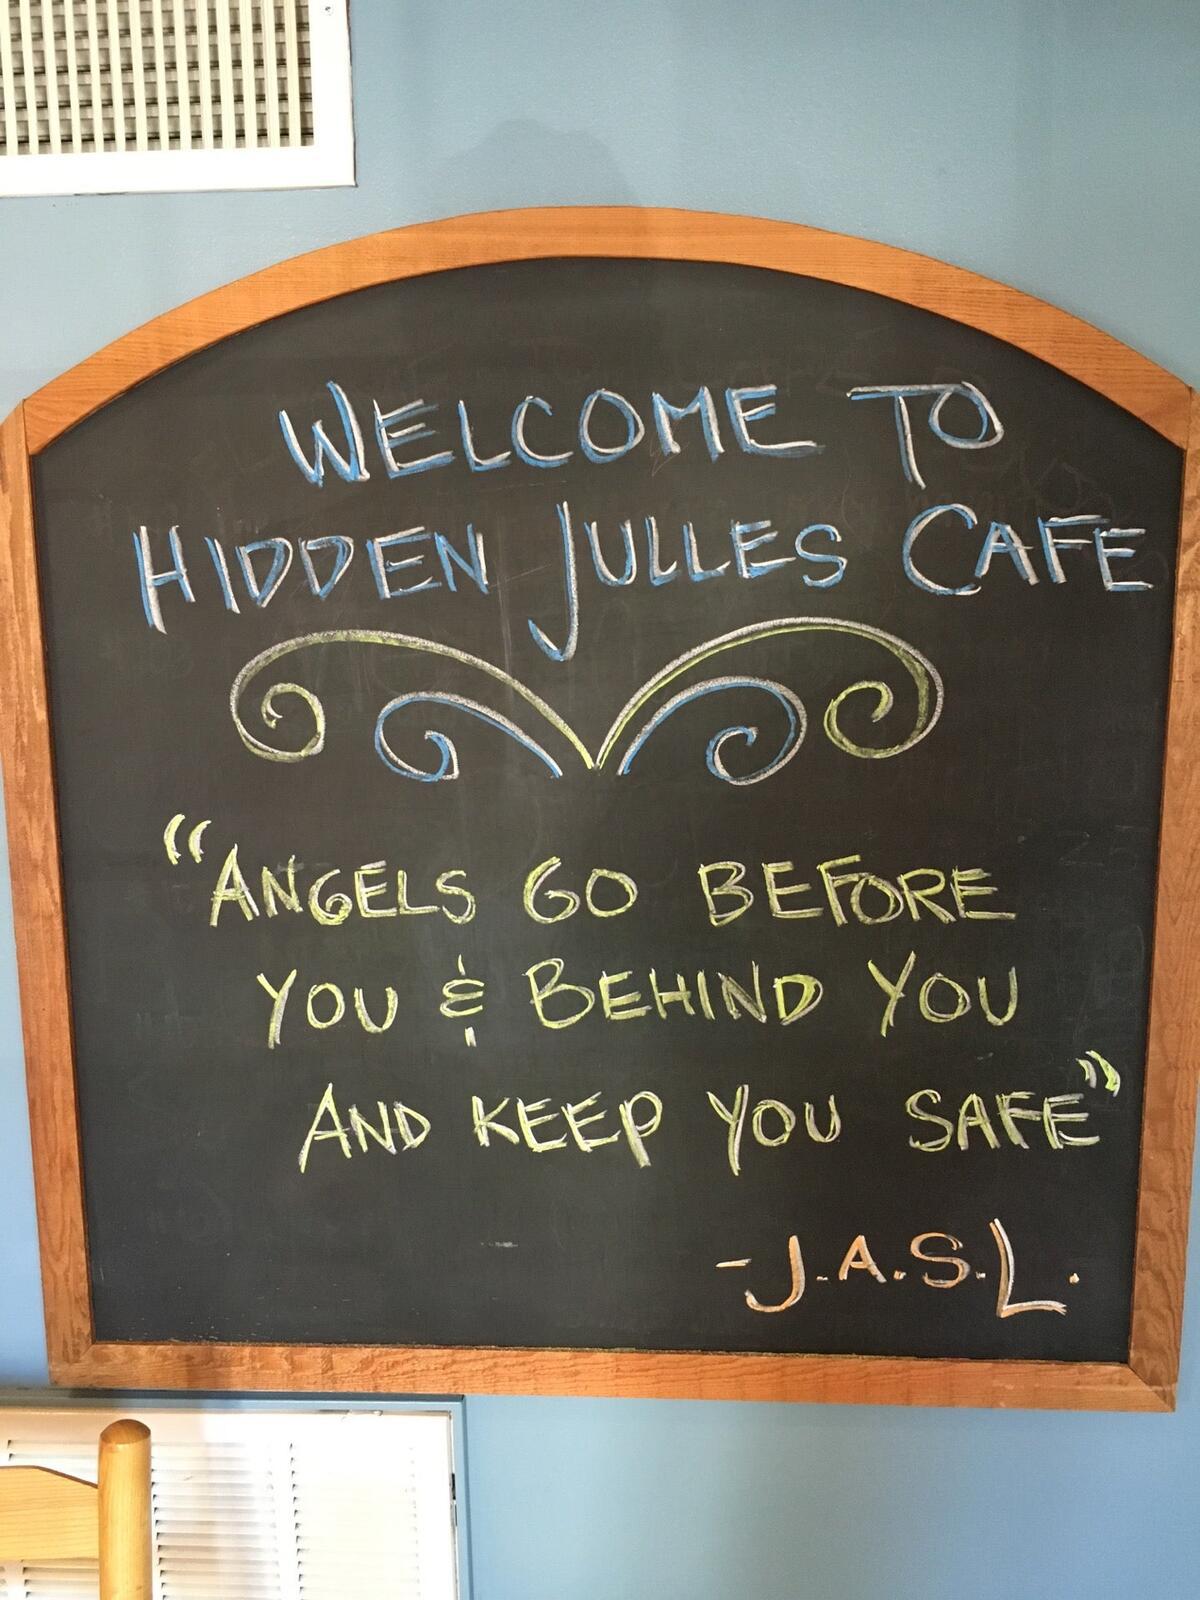 WELCOME TO
HIDDEN JULLES CAFE
“ANGELS GO BEFORE
YOU & BEHIND YOU
AND KEEP YOU SAFE”
-J.A.S.L.